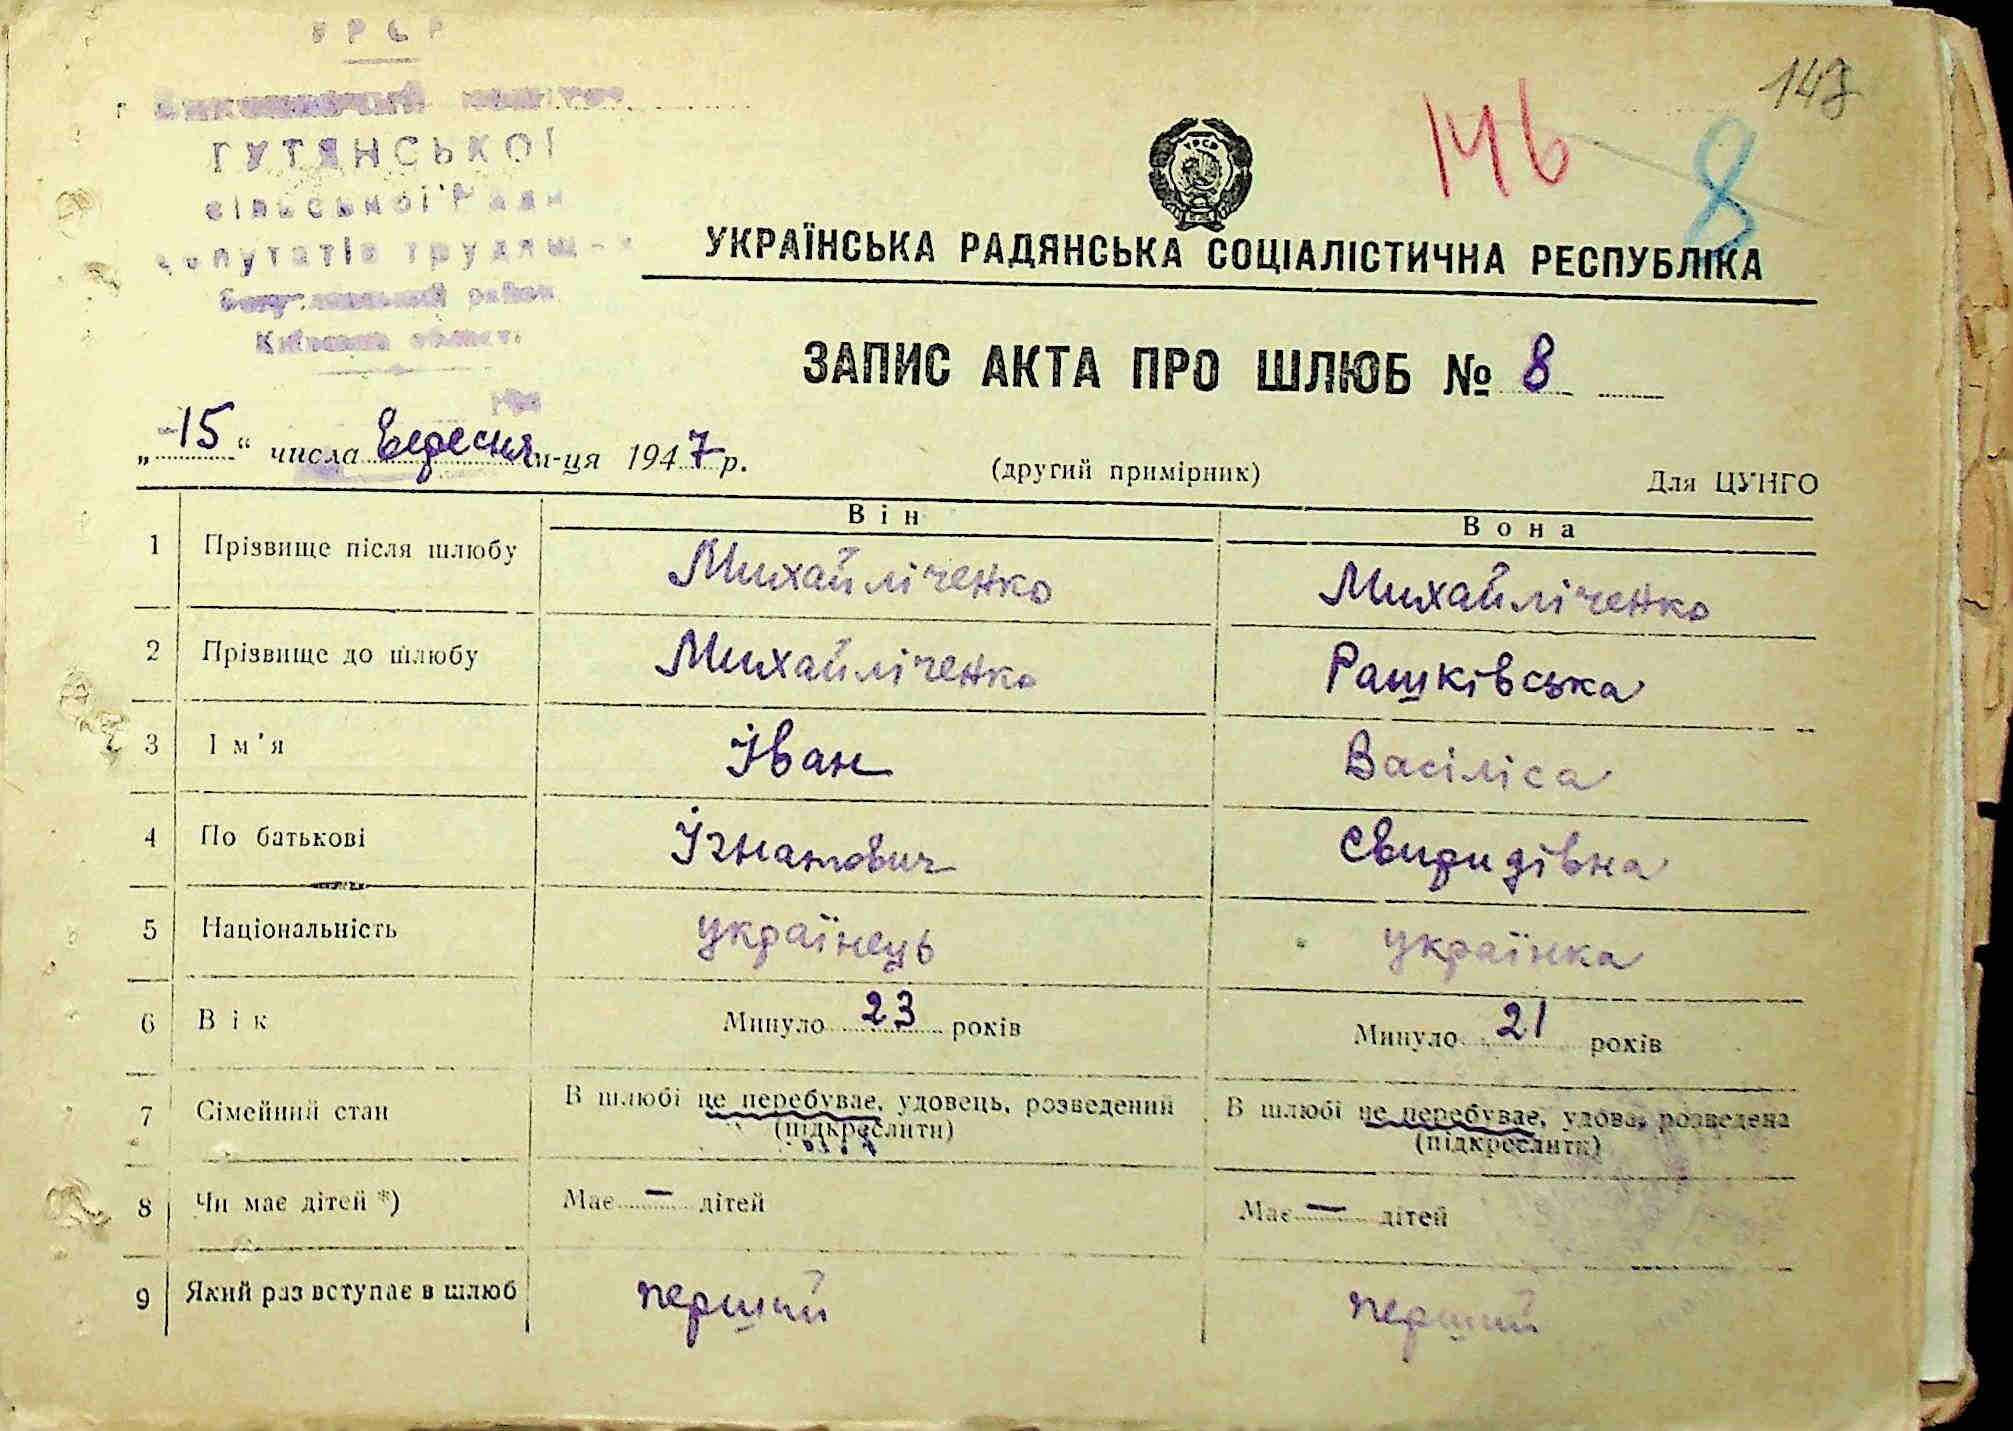 УРСР
ГУТЯНСЬКОЇ
сільської Ради
депутатів трудящ
район
147
146
8
УКРАЇНСЬКА РАДЯНСЬКА СОЦІАЛІСТИЧНА РЕСПУБЛІКА
ЗАПИС АКТА ПРО ШЛЮБ № 8
„15“ числа Вересня м-ця 1947 р.
(другий примірник)
Для ЦУНГО
Він Вона
1 Прізвище після шлюбу Михайліченко Михайліченко
2 Прізвище до шлюбу Михайліченко Рашківська
3 Ім'я Іван Васіліса
4 По батькові Ігнатович Свиридівна
5 Національність українець українка
6 Вік Минуло 23 років Минуло 21 років
7 Сімейний стан В шлюбі не перебуває, удовець, розведений В шлюбі не перебуває, удова, розведена
(підкреслити) (підкреслити)
8 Чи має дітей *) Має — дітей Має — дітей
9 Який раз вступає в шлюб перший перший